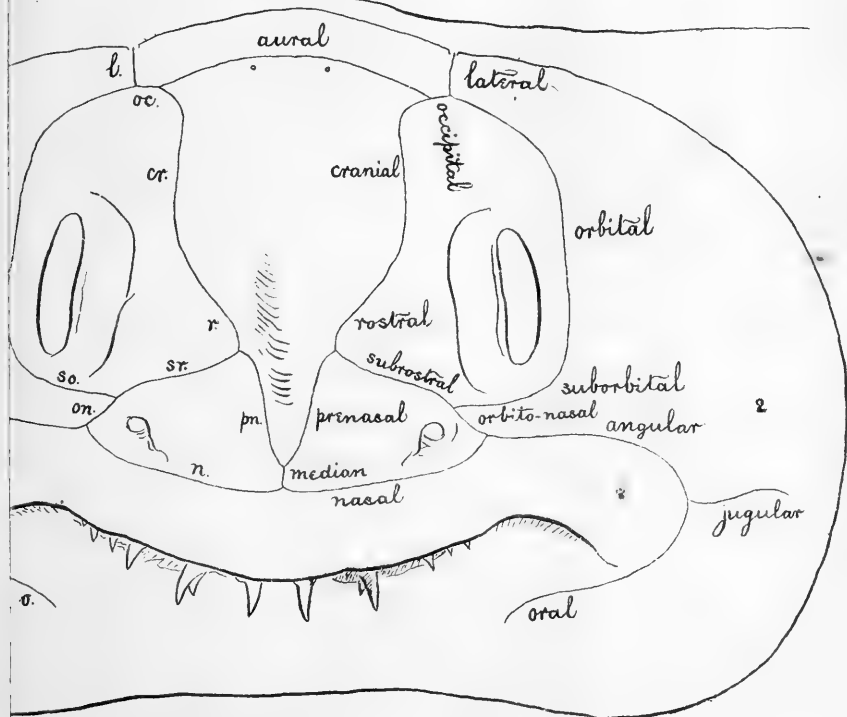 aural
l.
lateral
oc.
occipital
cr.
cranial
orbital
r.
rostral
sr.
subrostral
so.
suborbital
on.
orbito-nasal
angular
pn.
prenasal
n.
median
nasal
jugular
o.
oral